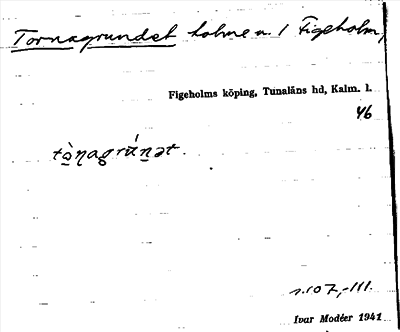 Tornagrundet holme n. l Figeholm,
Figeholms köping, Tunaläns hd, Kalm. l.
46
tò̱ŋagru̇́n̠ət.
s. 107,-111.
Ivar Modéer 1941